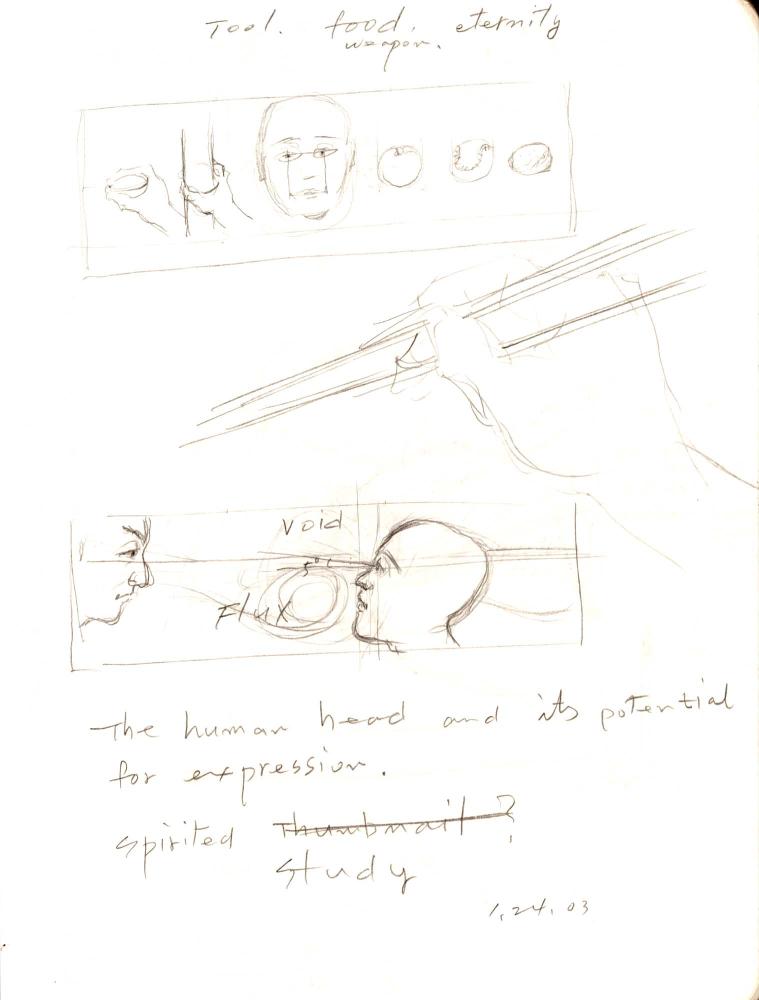 Tool. food. eternity
weapon.
void
5°C
Flux
The human head and its potential
for expression.
spirited Thumbnail?
study
1.24.03